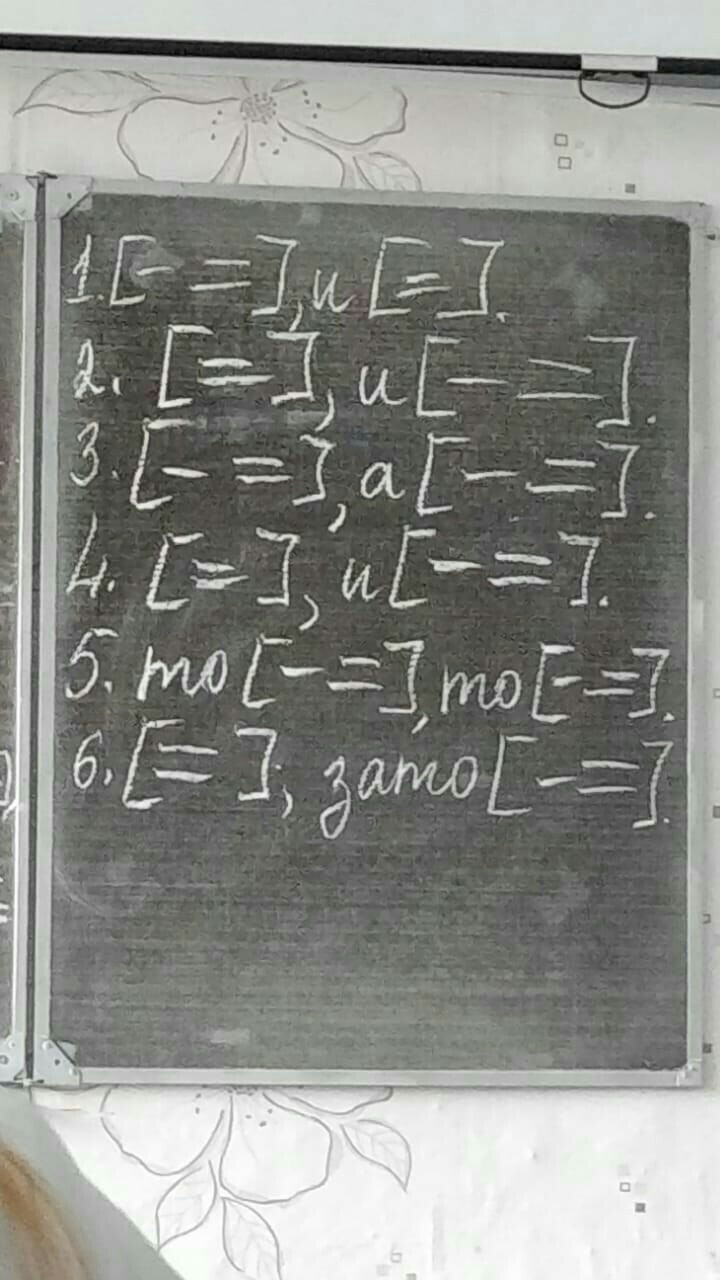 1. [- =], и [=].
2. [=], и [- =].
3. [- =], а [- =].
4. [=], и [- =].
5. то [- =], то [- =].
6. [=]; зато [- =].